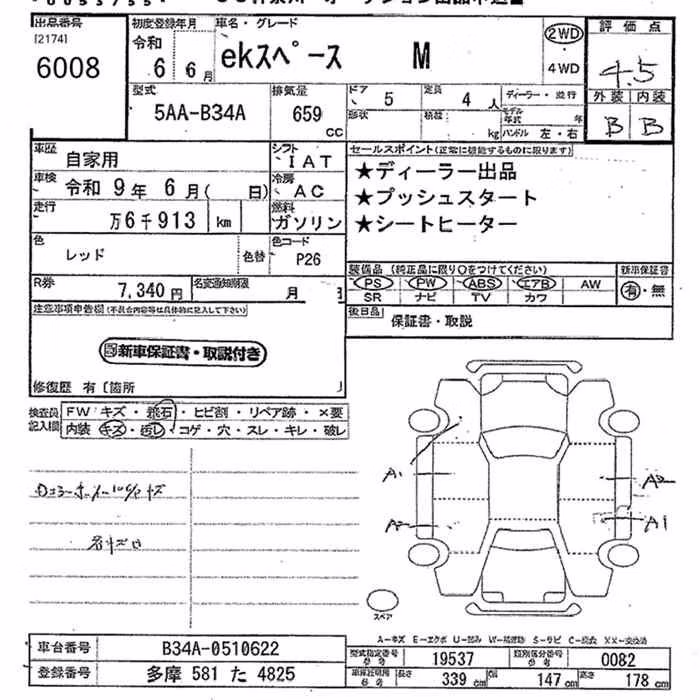 出品番号
[2174]
6008
初度登録年月
令和
6 6月
車名・グレード
ekスペース M
2WD
4WD
評価点
4.5
外装 内装
B B
型式
5AA-B34A
排気量
659
CC
ドア
5
形状
定員
4人
積載
kg
ディーラー・並行
モデル年式 年
ハンドル 左・右
車歴
自家用
シフト
IAT
車検
令和 9年 6月( 日)
冷房
AC
走行
万6千913 km
燃料
ガソリン
色
レッド
色替
色コード
P26
R券
7,340円
名変通知期限
月
セールスポイント(正常に機能するものに限ります)
★ディーラー出品
★プッシュスタート
★シートヒーター
装備品 (純正品に限り○をつけてください)
PS PW ABS エアB AW
SR ナビ TV カワ
新車保証書
有・無
後日品
保証書・取説
注意事項申告欄(不具合内容等は具体的に記入して下さい)
新車保証書・取説付き
修復歴 有〔箇所 〕
検査員記入欄
FW キズ・飛石・ヒビ割・リペア跡・×要
内装 キズ・汚レ・コゲ・穴・スレ・キレ・破レ
A1
A2
A2
A1
スペア
車台番号
B34A-0510622
登録番号
多摩 581 た 4825
型式指定番号
19537
類別区分番号
0082
長さ
339 cm
幅
147 cm
高さ
178 cm